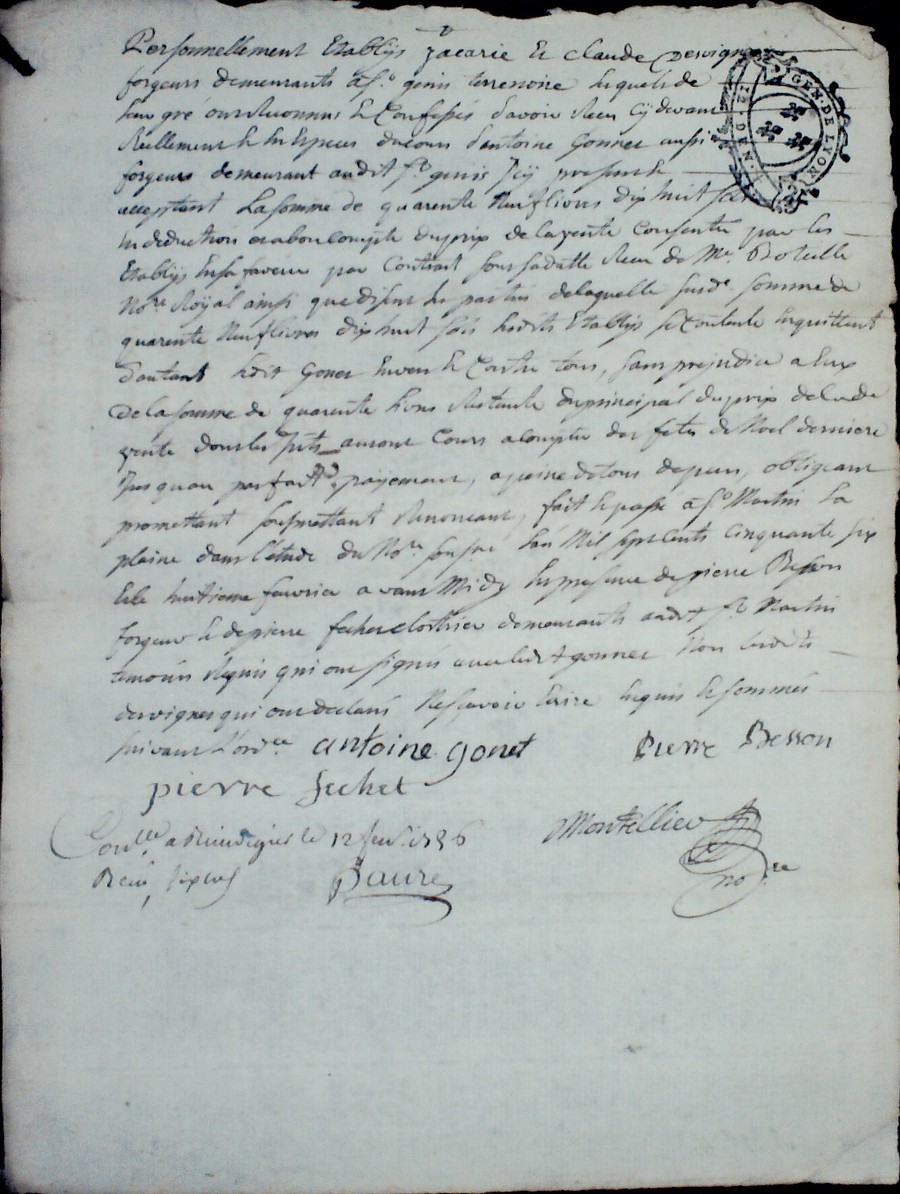 Personnellement Etablys Zacarie Et Claude Desvignes
forgeurs demeurants a St genis terrenoire lesquels de
leur gré ont reconnus Et Confessés d'avoir Receu cy devant
Reellement Et En Especes du cours d'antoine Gonnet aussi
forgeurs demeurant audit St genis icy present Et
acceptant La somme de quarente Neuf livres dix huit sols
En deduction et a bon compte du prix de la vente Consentie par les
Etablys En sa faveur par Contrat sous sa datte Receu de Me. Boteille
Nore Royal ainsi que disent les parties de laquelle susde somme de
quarente Neuf livres dix huit sols lesdits Etablys se Contente En quittent
d'autant ledit Gonet Envers Et Contre tous, sans prejudice a Eux
De la somme de quarente livres Restante du principal du prix de lade
vente dont les jnts auront Cours a compter des fetes de Noel derniere
Jusqu'au parfait payement, a peine de tous depens, obligeant
promettant soumettant Renonceant, fait Et passé a St Martin La
plaine dans l'étude du Nore soussné L'an Mil sept Cents Cinquante six
Et le huitieme fevrier avant Midy En presence de pierre Besson
forgeur Et de pierre fechet cloutrier demeurants audit St Martin
temoins Requis qui ont signés avec ledit gonnet Non lesdits
desvignes qui ont declarés Ne sçavoir Ecrire Enquis Et sommés
suivant L'ordce antoine gonet Pierre Besson
pierre fechet
Conllé a Rivedegier le 12 fevr. 1756 Montellier
Receu six sols Baure nore
GEN. DE LYON